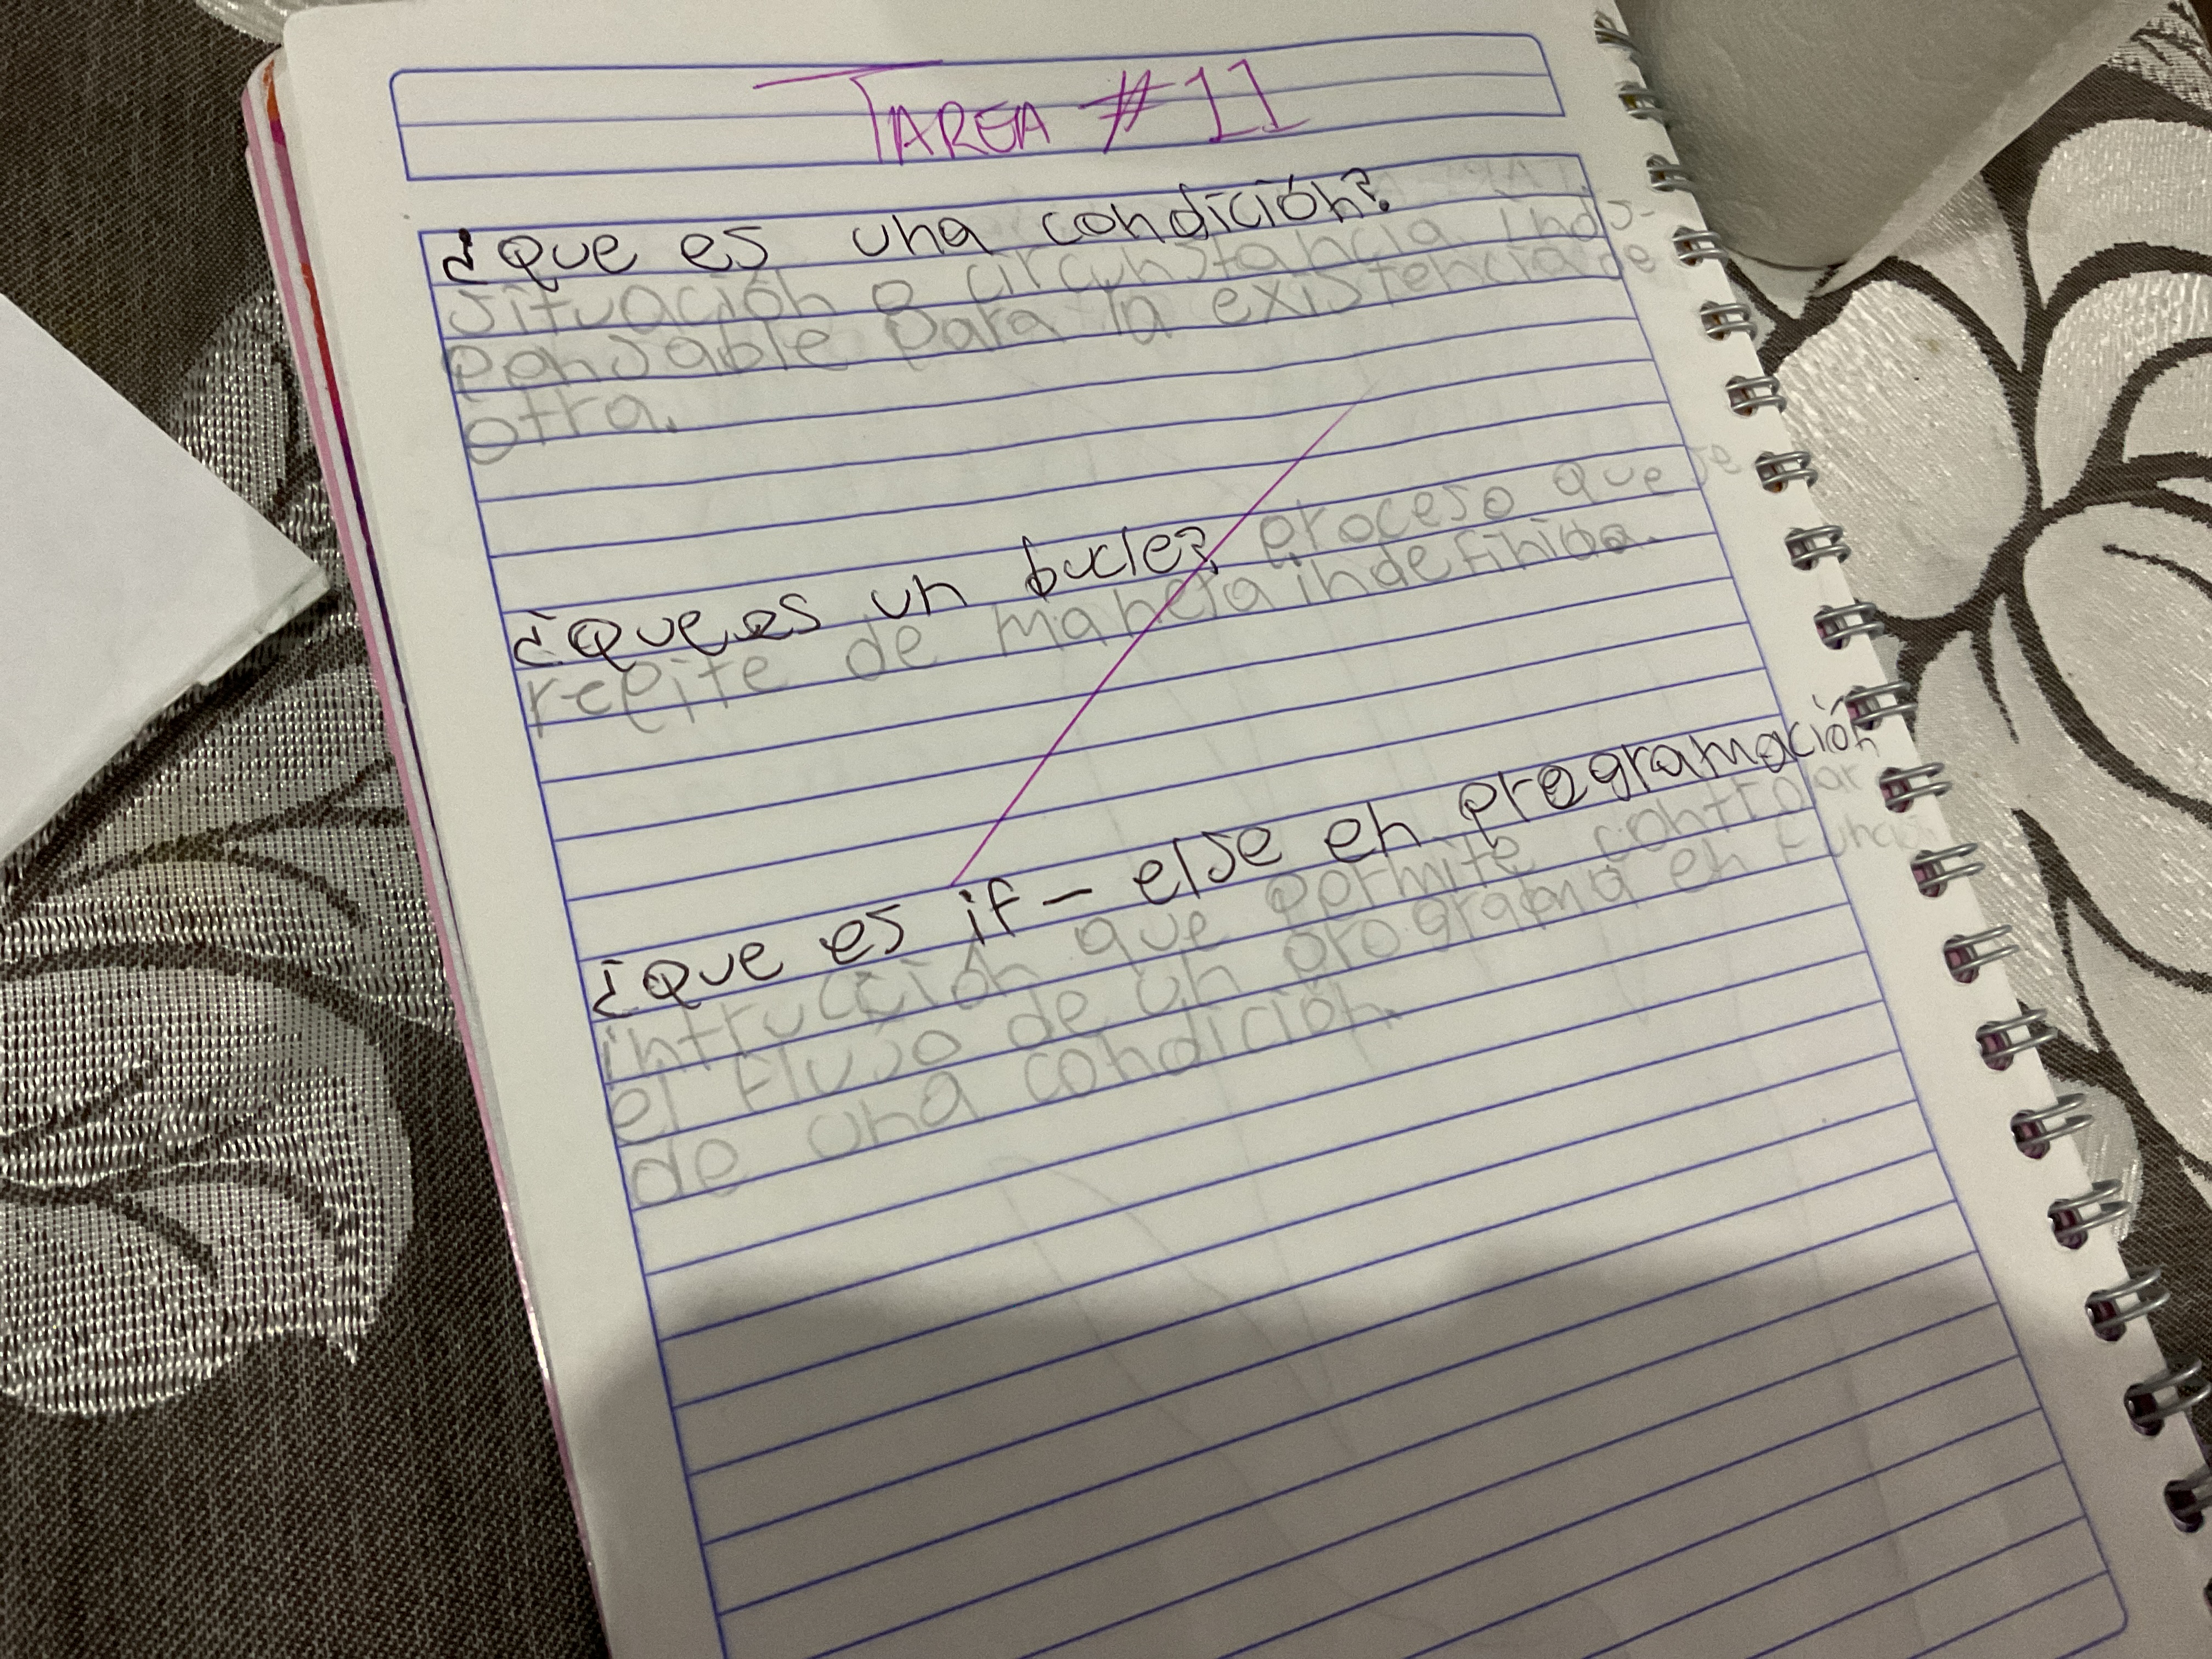 TAREA #11
¿Que es una condición?
situación o circunstancia indis-
pensable para la existencia de
otra.
¿que es un bucle? proceso que se
repite de manera indefinida.
¿que es if - else en programación
intrucción que permite controlar
el flujo de un programa en
de una condición.